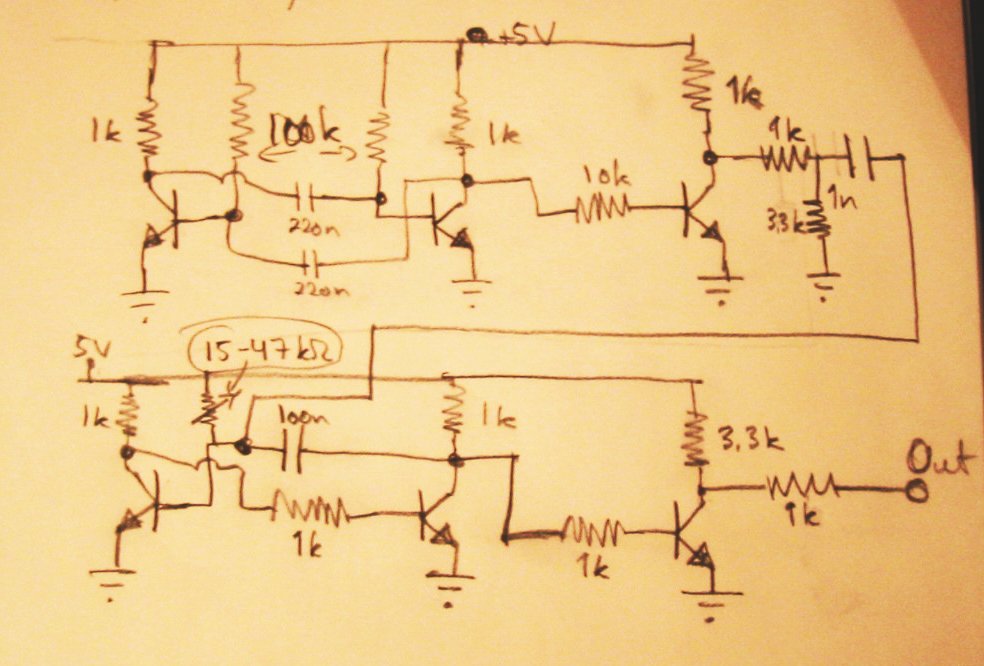 +5V
1k
100k
1k
1k
1k
10k
220n
1n
3,3k
220n
5V
15-47kΩ
1k
100n
1k
3,3k
Out
1k
1k
1k